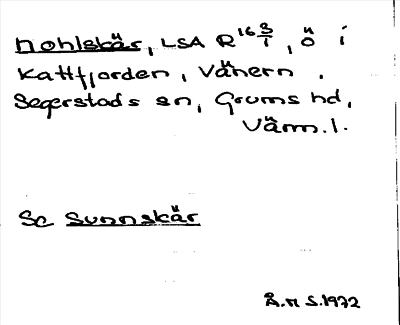 Hohlskär, LSA R 16 S/1, ö i
Kattfjorden, Vänern.
Segerstads sn, Grums hd,
Värm. l.
Se Sunnskär
Å. N S. 1972